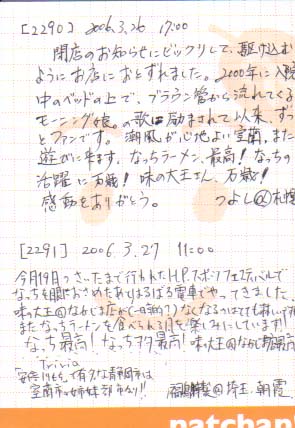 [2290] 2006.3.26 17:00
閉店のお知らせにビックリして、駆け込む
ようにお店におとずれました。2000年に入院
中のベッドの上で、ブラウン管から流れてくる
モーニング娘。の歌に励まされて以来、ずっ
とファンです。潮風が心地よい室蘭、また
遊びに来ます。なっちラーメン、最高!なっちの
活躍に万歳!味の大王さん、万歳!
感動をありがとう。 つよし@札幌
[2291] 2006.3.27 11:00
今月19日 さいたまで行われたH.P.スポーツフェスティバルで
なっちを眼におさめたあと はるばる電車でやってきました。
味の大王@なかじま店が(一時的?)なくなるのはとても
またなっちラーメンを食べられる日を楽しみにしています!!
なっち最高! 味の大王@なかじま店最高
Trivia
静岡市は
室蘭市と姉妹都市なり!!
@埼玉 朝霞
patchan